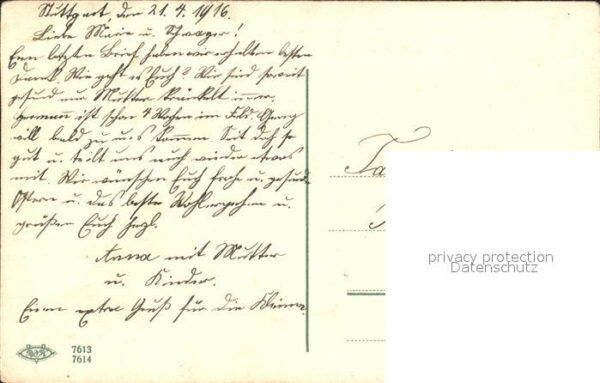 Stuttgart, den 21.4.1916.
Liebe Marie u. Schwager!
Euren letzten Brief haben wir erhalten besten
Dank. Wie geht es Euch? Wir sind soweit
gesund nur Mutter kränkelt immer.
Hermann ist schon 4 Wochen im Feld. Georg
will bald zu uns kommen. Seit doch so
gut u. teilt uns auch wieder etwas
mit. Wir wünschen Euch frohe u. gesunde
Ostern u. das beste Wohlergehen u.
grüßen Euch herzl.
Anna mit Mutter
u. Kinder.
Einen extra Gruß für die Kleinen
privacy protection
Datenschutz
7613
7614